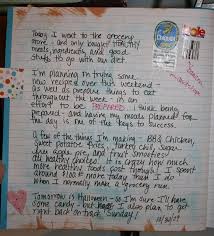 Today I went to the grocery
store - and only bought healthy
meats, ingredients and good
stuffs to go with our diet
I'm planning on trying some
new recipes over this weekend -
as well as prepare things to eat
throughout the week - in an
effort to be PREPARED. I think being
prepared - and having my meals planned for
the day is one of the keys to success.
A few of the things I'm making - BBQ Chicken,
sweet potato fries, turkey chili soup,
apple pie, and fruit smoothies!
all healthy choices. It is crazy how much
more healthy foods cost though! I spent
around $100 more today than I do
when I normally make a grocery run.
Tomorrow is Halloween - so I'm sure I'll have
some candy - but I also plan to get
right back on track Sunday!
10/30/09